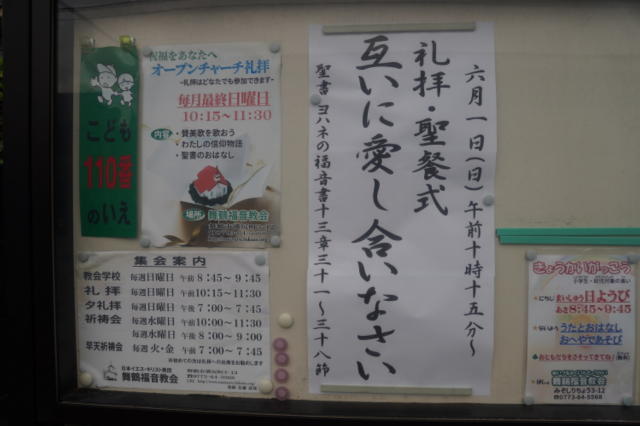 こども
110番
のいえ
祝福をあなたへ
オープンチャーチ礼拝
-礼拝はどなたでも参加できます-
毎月最終日曜日
10:15～11:30
内容
・賛美歌を歌おう
・わたしの信仰物語
・聖書のおはなし
場所
舞鶴福音教会
六月一日(日)午前十時十五分～
礼拝・聖餐式
互いに愛し合いなさい
聖書 ヨハネの福音書十三章三十一～三十八節
集会案内
教会学校 毎週日曜日 午前 8:45～9:45
礼拝 毎週日曜日 午前10:15～11:30
夕礼拝 毎週日曜日 午後 7:00～7:45
祈祷会 毎週水曜日 午前10:00～11:30
毎週水曜日 午後 8:00～9:00
早天祈祷会 毎週火・金 午前 7:00～7:45
日本イエス・キリスト教団
舞鶴福音教会
0773-64-5568
きょうかいがっこう
まいしゅう日ようび
あさ8:45～9:45
うたとおはなし
おへやであそび
おともだちをさそってきてね!
舞鶴福音教会
みぞしりちょう53-12
0773-64-5568